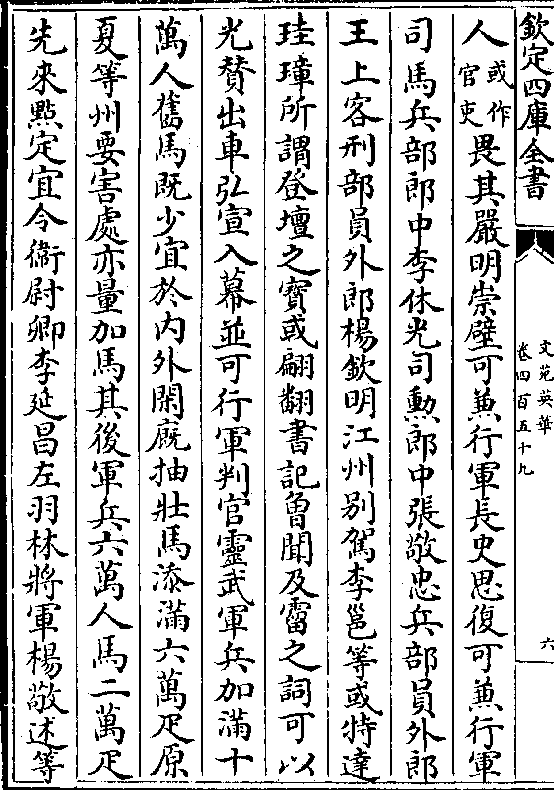 欽定四庫全書
文苑英華
卷四百五十九
六
人或作官吏畏其嚴明崇璧可兼行軍長史思復可兼行軍
司馬兵部郎中李休光司勳郎中張敬忠兵部員外郎
王上客刑部員外郎楊欽明江州别駕李邕等或特達
珪璋所謂登壇之寳或翩翻書記曾聞及霤之詞可以
光賛出車弘宣入幕並可行軍判官靈武軍兵加滿十
萬人舊馬既少宜於内外閑廐抽壯馬添滿六萬疋原
夏等州要害處亦量加馬其後軍兵六萬人馬二萬疋
先來㸃定宜令衛尉卿李延昌左羽林將軍楊敬述等